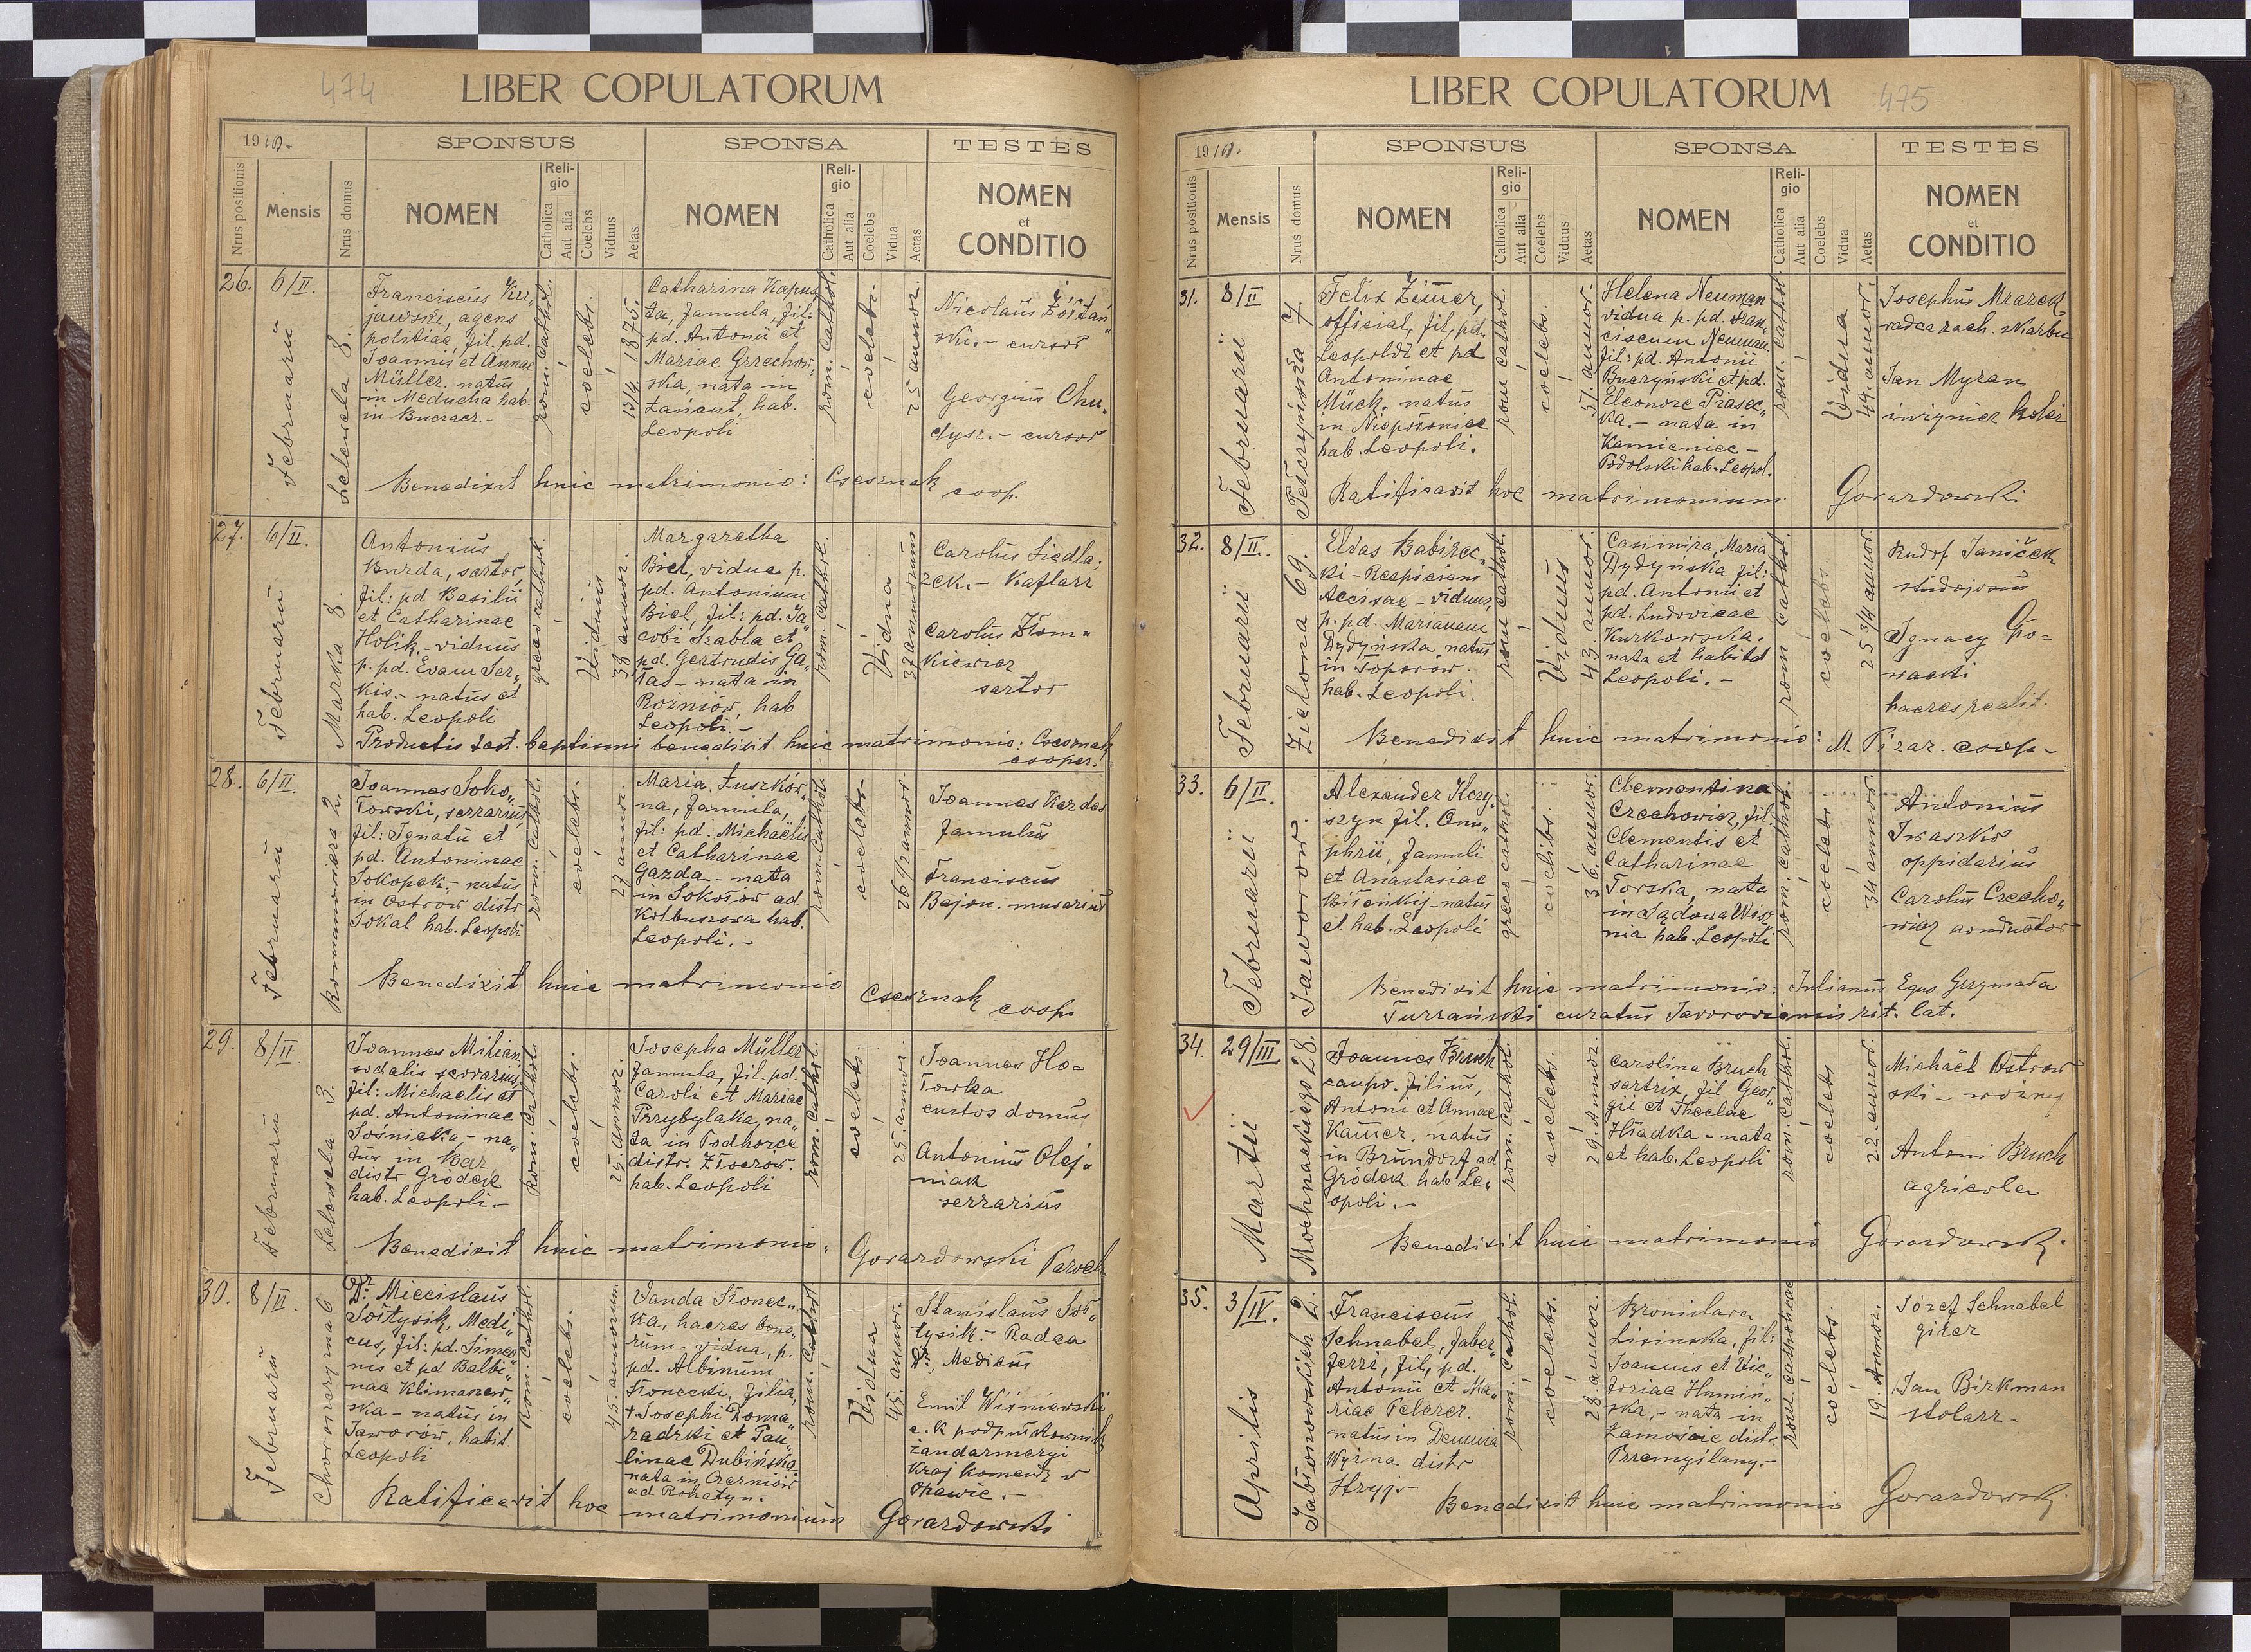 474
LIBER COPULATORUM
1910.
SPONSUS
SPONSA
TESTES
Nrus positionis
Mensis
Nrus domus
NOMEN
Religio
Catholica
Aut alia
Coelebs
Viduus
Aetas
NOMEN
Religio
Catholica
Aut alia
Coelebs
Vidua
Aetas
NOMEN
et
CONDITIO
26.
6/II.
Februarii
Lelewela 8.
Franciscus
jowski, agens
politiae, fil. pd.
Joannis et Annae
Müller. natus
in Meducha hab.
in
rom. cathol.
coelebs.
13/4. 1875.
Catharina Kapus
ta, famula, fil:
pd. Antonii et
Mariae Grzechow„
ska, nata in
Łańcut, hab.
Leopoli
rom. cathol.
coelebs.
25 annor.
Nicolaus Żółtań„
ski. – cursor
Georgius Chu.
dysz. – cursor
Benedixit huic matrimonio: Csesznak
coop.
27.
6/II.
Februarii
Marka 8.
Antonius
Burda, sartor,
fil: pd Basilii
et Catharinae
Holik. – viduus
p. pd. Evam Ser„
kis. – natus et
hab. Leopoli
greco cathol.
Viduus
38 annor.
Margaretha
Biel, vidua p.
pd. Antonium
Biel, fil: pd. Ja
cobi Szabla et
pd. Gertrudis Ga„
łas – nata in
Rożniów hab
Leopoli. –
rom. cathol.
Vidua
37 annorum
Carolus Siedla,
czek. – Kaflarz
Carolus
kiewicz
sartor
Productis test. baptismi benedixit huic matrimonio: Csesznak
cooper.
28.
6/II.
Februarii
Romanowicza 2.
Joannes Soko„
łowski, serrarius,
fil: Ignatii et
pd. Antoninae
Sokopek, – natus
in Ostrow distr
Sokal hab. Leopoli
rom. cathol.
coelebs.
27 annor.
Maria Łuszków„
na, famula,
fil: pd. Michaëlis
et Catharinae
Gazda. – nata
in Sokołów ad
Kolbuszowa hab.
Leopoli. –
rom. cathol.
coelebs.
26 1/2 annor
Joannes Kerdas
famulus
Franciscus
Bajon. murarius
Benedixit huic matrimonio
Csesznak coop.
29.
8/II
Februarii
Lelewela 3.
Joannes Milian
sodalis serrarius,
fil: Michaelis et
pd. Antoninae
Sośnicka – na„
tus in Bar
distr Gródek
hab. Leopoli. –
Rom. Cathol.
coelebs.
25. annor.
Josepha Müller
famula, fil. pd.
Caroli et Mariae
Przybylska, na„
ta in Podhorce
distr. Złoczów.
hab. Leopoli
rom. cathol.
coelebs.
25 annor.
Joannes Ho=
łowka
custos domus
Antonius Olej=
niak
serrarius
Benedixit huic matrimonio.
Gorardowski Paroch
30.
8/II.
Februarii
Chorąszczyzna 6
Dr. Miecislaus
Sołtysik, Medi„
cus, fil: pd. Simeo
nis et pd Balbi„
nae Klimaszew„
ska – natus in
Jaworów, habit.
Leopoli
Rom. Cathol.
coelebs.
45. annorum
Vanda Słonec„
ka, haeres bono„
rum – vidua, p.
pd. Albinum
Słonecki, filia,
† Josephi Doma„
radzki et Pau„
linae Dubińska
nata in Czerniów
ad Rohatyn.
rom. cathol.
Vidua
45. annor.
Stanislaus Soł„
tysik. – Radca
Dr. Medicus
Emil Wiśniewski
c. k podpułkownik
żandarmeryi
Kraj komendz w
Opawie. –
Ratificavit hoc matrimonium
Gorardowski
475
LIBER COPULATORUM
1910.
SPONSUS
SPONSA
TESTES
Nrus positionis
Mensis
Nrus domus
NOMEN
Religio
Catholica
Aut alia
Coelebs
Viduus
Aetas
NOMEN
Religio
Catholica
Aut alia
Coelebs
Vidua
Aetas
NOMEN
et
CONDITIO
31.
8/II
Februarii
Pełczyńska 7.
Felix Zimer,
official, fil, pd.
Leopoldi et pd
Antoninae
Mück, natus
in Niepołomice
hab. Leopoli.
rom cathol.
coelebs.
51. annor.
Helena Neuman
vidua p. pd. Fran„
ciscum Neuman.
fil: pd. Antonii
Buczyński et pd.
Eleonore Piasec„
ka. – nata in
Kamieniec –
Podolski hab. Leopol.
rom. cathol.
Vidua
49. annor.
Josephus Mrazek
radca rach. skarbu
Jan Myzan
inżynier kolei
Ratificavit hoc matrimonium
Gorardowski
32.
8/II.
Februarii
Zielona 69.
Elias Babirec„
ki – Respiciens
Accisae – viduus,
p. pd. Marianam
Dydyńska, natus
in Toporow
hab. Leopoli.
rom cathol.
Viduus
43. annor.
Casimira, Maria
Dydyńska fil:
pd. Antonii et
pd. Ludovicae
Kurkowska.
nata et habitat
Leopoli. –
rom cathol.
coelebs.
25 3/4 annor.
Rudolf Janiček
studiosus
Ignacy
haeres realit.
Benedixit huic matrimonio: M. Pizar. coop –
33.
6/II.
Februarii
Jaworow.
Alexander Hery„
szyn fil. Onu„
phrii, famuli
et Anastasiae
natus
et hab. Leopoli
greco cathol.
coelibs.
36. annor.
Clementina
Czechowicz, fil:
Clementis et
Catharinae
Torska, nata
in Sądowa Wisz„
nia hab. Leopoli
rom. cathol.
coelebs.
34 annor.
Antonius
Iwaszko
oppidarius
Carolus Czecho„
wicz conductor
Benedixit huic matrimonio: Julianus Eques Grzymała
Turzański curatus Javoroviensis rit. lat.
34.
29/III
Martii
Mochnackiego 28.
Joannes Bruch
caupo. filius,
Antoni et Annae
Kamer. natus
in Brundorf ad
Gródek hab Le„
opoli. –
rom. cathol.
coelebs.
29. Annor.
Carolina Bruch
sartrix, fil Geor„
gii et Theclae
Hladka – nata
et hab. Leopoli
rom. cathol.
coelebs
22. annor.
Michaël Ostrow
ski – woźny
Antoni Bruch
agricola
Benedixit huic matrimonio
Gorardowski.
35.
3/IV.
Aprilis
Jabłonowskich 2.
Franciscus
Schnabel, faber
ferri, fil, pd.
Antonii et Ma„
riae Pelczer.
natus in Demnia
Wyżna distr
Stryj
rom. cathol.
coelebs.
28. annor.
Bronislava
Lisinska, fil:
Joannis et Vic„
toriae Humiń„
ska, – nata in
Zamoście distr.
Przemyślany. –
rom. catholicae
coelebs.
19. Annor.
Józef Schnabel
giser
Jan Birkman
stolarz –
Benedixit huic matrimonio
Gorardowski